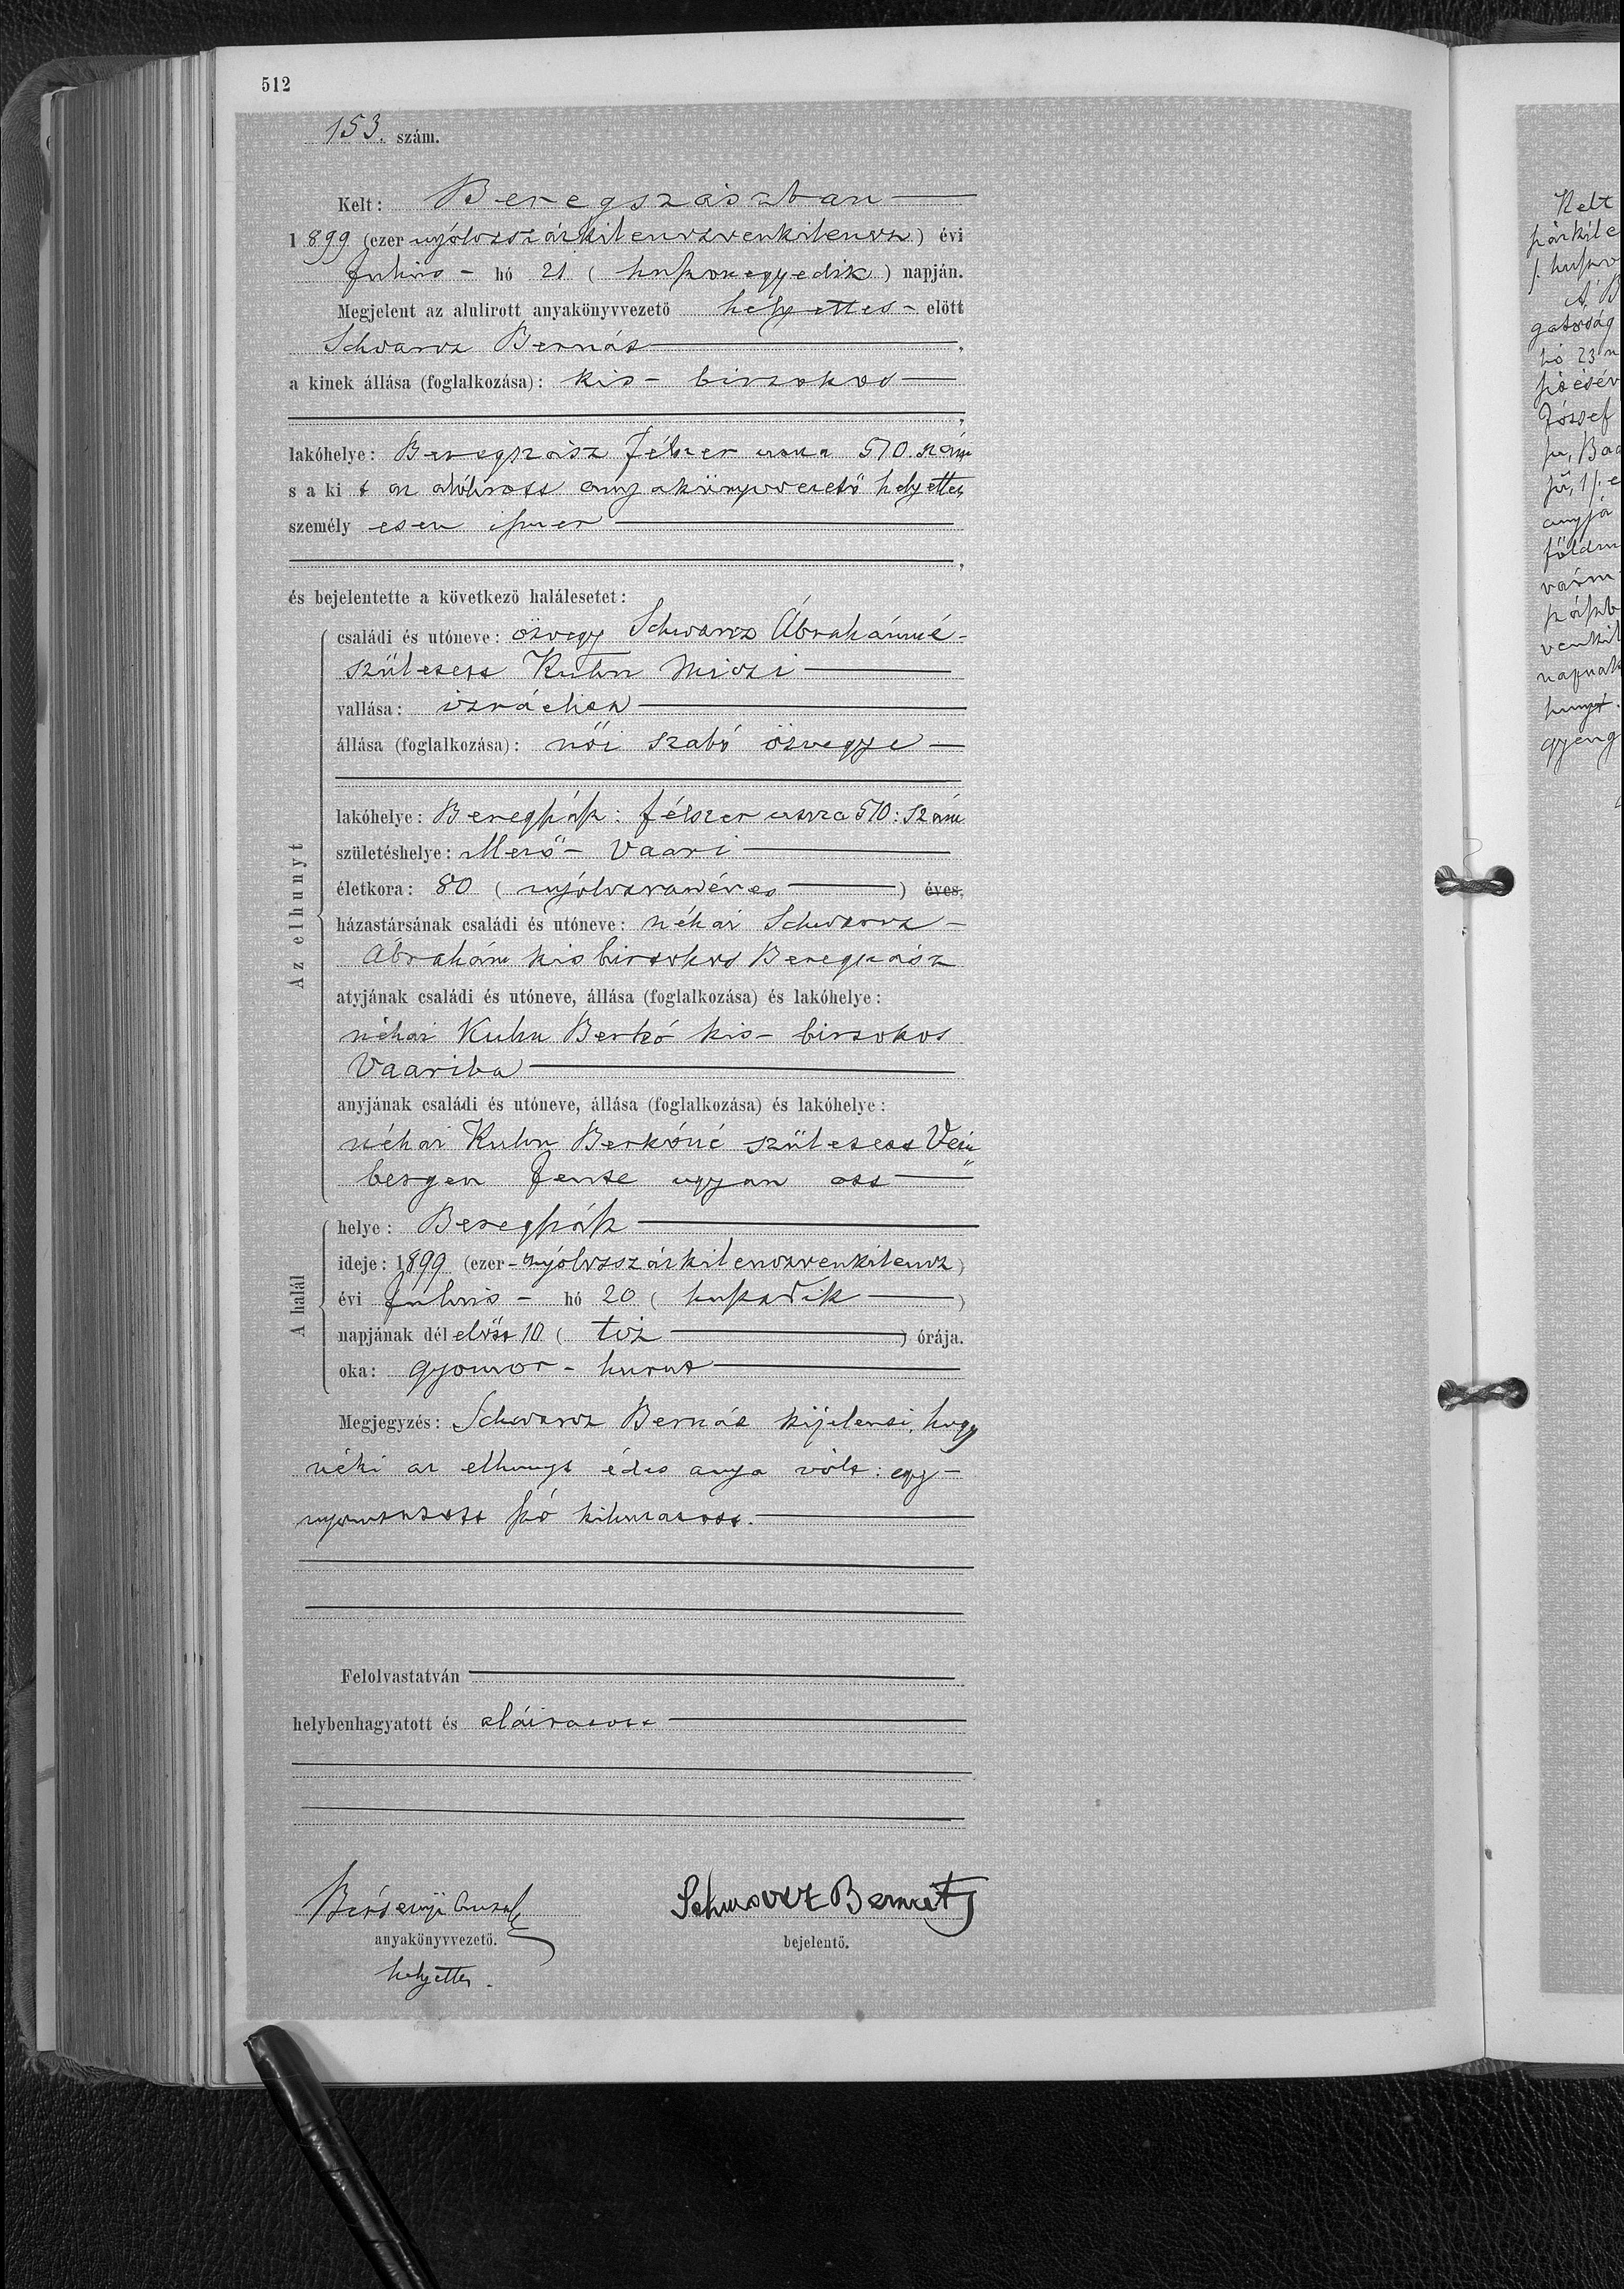 512
153. szám.
Kelt: Beregszászban
1899 (ezer nyólczszázkilenczvenkilencz) évi
Julius - hó 21 (huszonegyedik) napján.
Megjelent az alulirott anyakönyvvezető helyettes - előtt
Schvarcz Bernát
a kinek állása (foglalkozása): kis - birtokos
lakóhelye: Beregszász Félszer utcza 570. szám
s a kit az alólirott anyakönyvvezető helyettes
személyesen ismer
és bejelentette a következő halálesetet:
Az elhunyt
családi és utóneve: özvegy Schvarcz Ábrahámné -
született Kuhn Miczi
vallása: izráelita
állása (foglalkozása): női szabó özvegye
lakóhelye: Beregszász: félszer utcza 570: szám
születéshelye: Mező - Vaari
életkora: 80 (nyólczvanéves) éves.
házastársának családi és utóneve: néhai Schvarcz -
Ábrahám kis birtokos Beregszász
atyjának családi és utóneve, állása (foglalkozása) és lakóhelye:
néhai Kuhn Berkó kis - birtokos
Vaariba
anyjának családi és utóneve, állása (foglalkozása) és lakóhelye:
néhai Kuhn Berkóné született Vein
bergen Jente ugyan ott
A halál
helye: Beregszász
ideje: 1899 (ezer - nyólczszázkilenczvenkilencz)
évi Julius - hó 20 (huszadik)
napjának dél előtt 10 (tiz) órája.
oka: gyomor - hurut
Megjegyzés: Schvarcz Bernát kijelenti, hogy
néki az elhunyt édes anya vólt: egy -
nyomtatott szó kihuzatott.
Felolvastatván
helybenhagyatott és aláiratott
anyakönyvvezető.
helyettes.
Schwarcz Bernat
bejelentő.
Kelt
gatóság
hó 23
József
anyja
gyeng